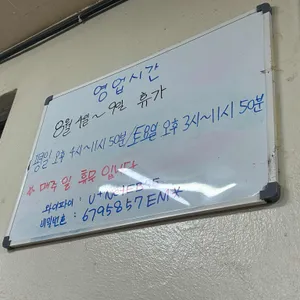 영업시간
8월 4일 ~ 9일 휴가
평일 오후 4시~11시 50분/토요일 오후 3시~11시 50분
※ 매주 일 휴무 입니다
와이파이 :
비밀번호 :